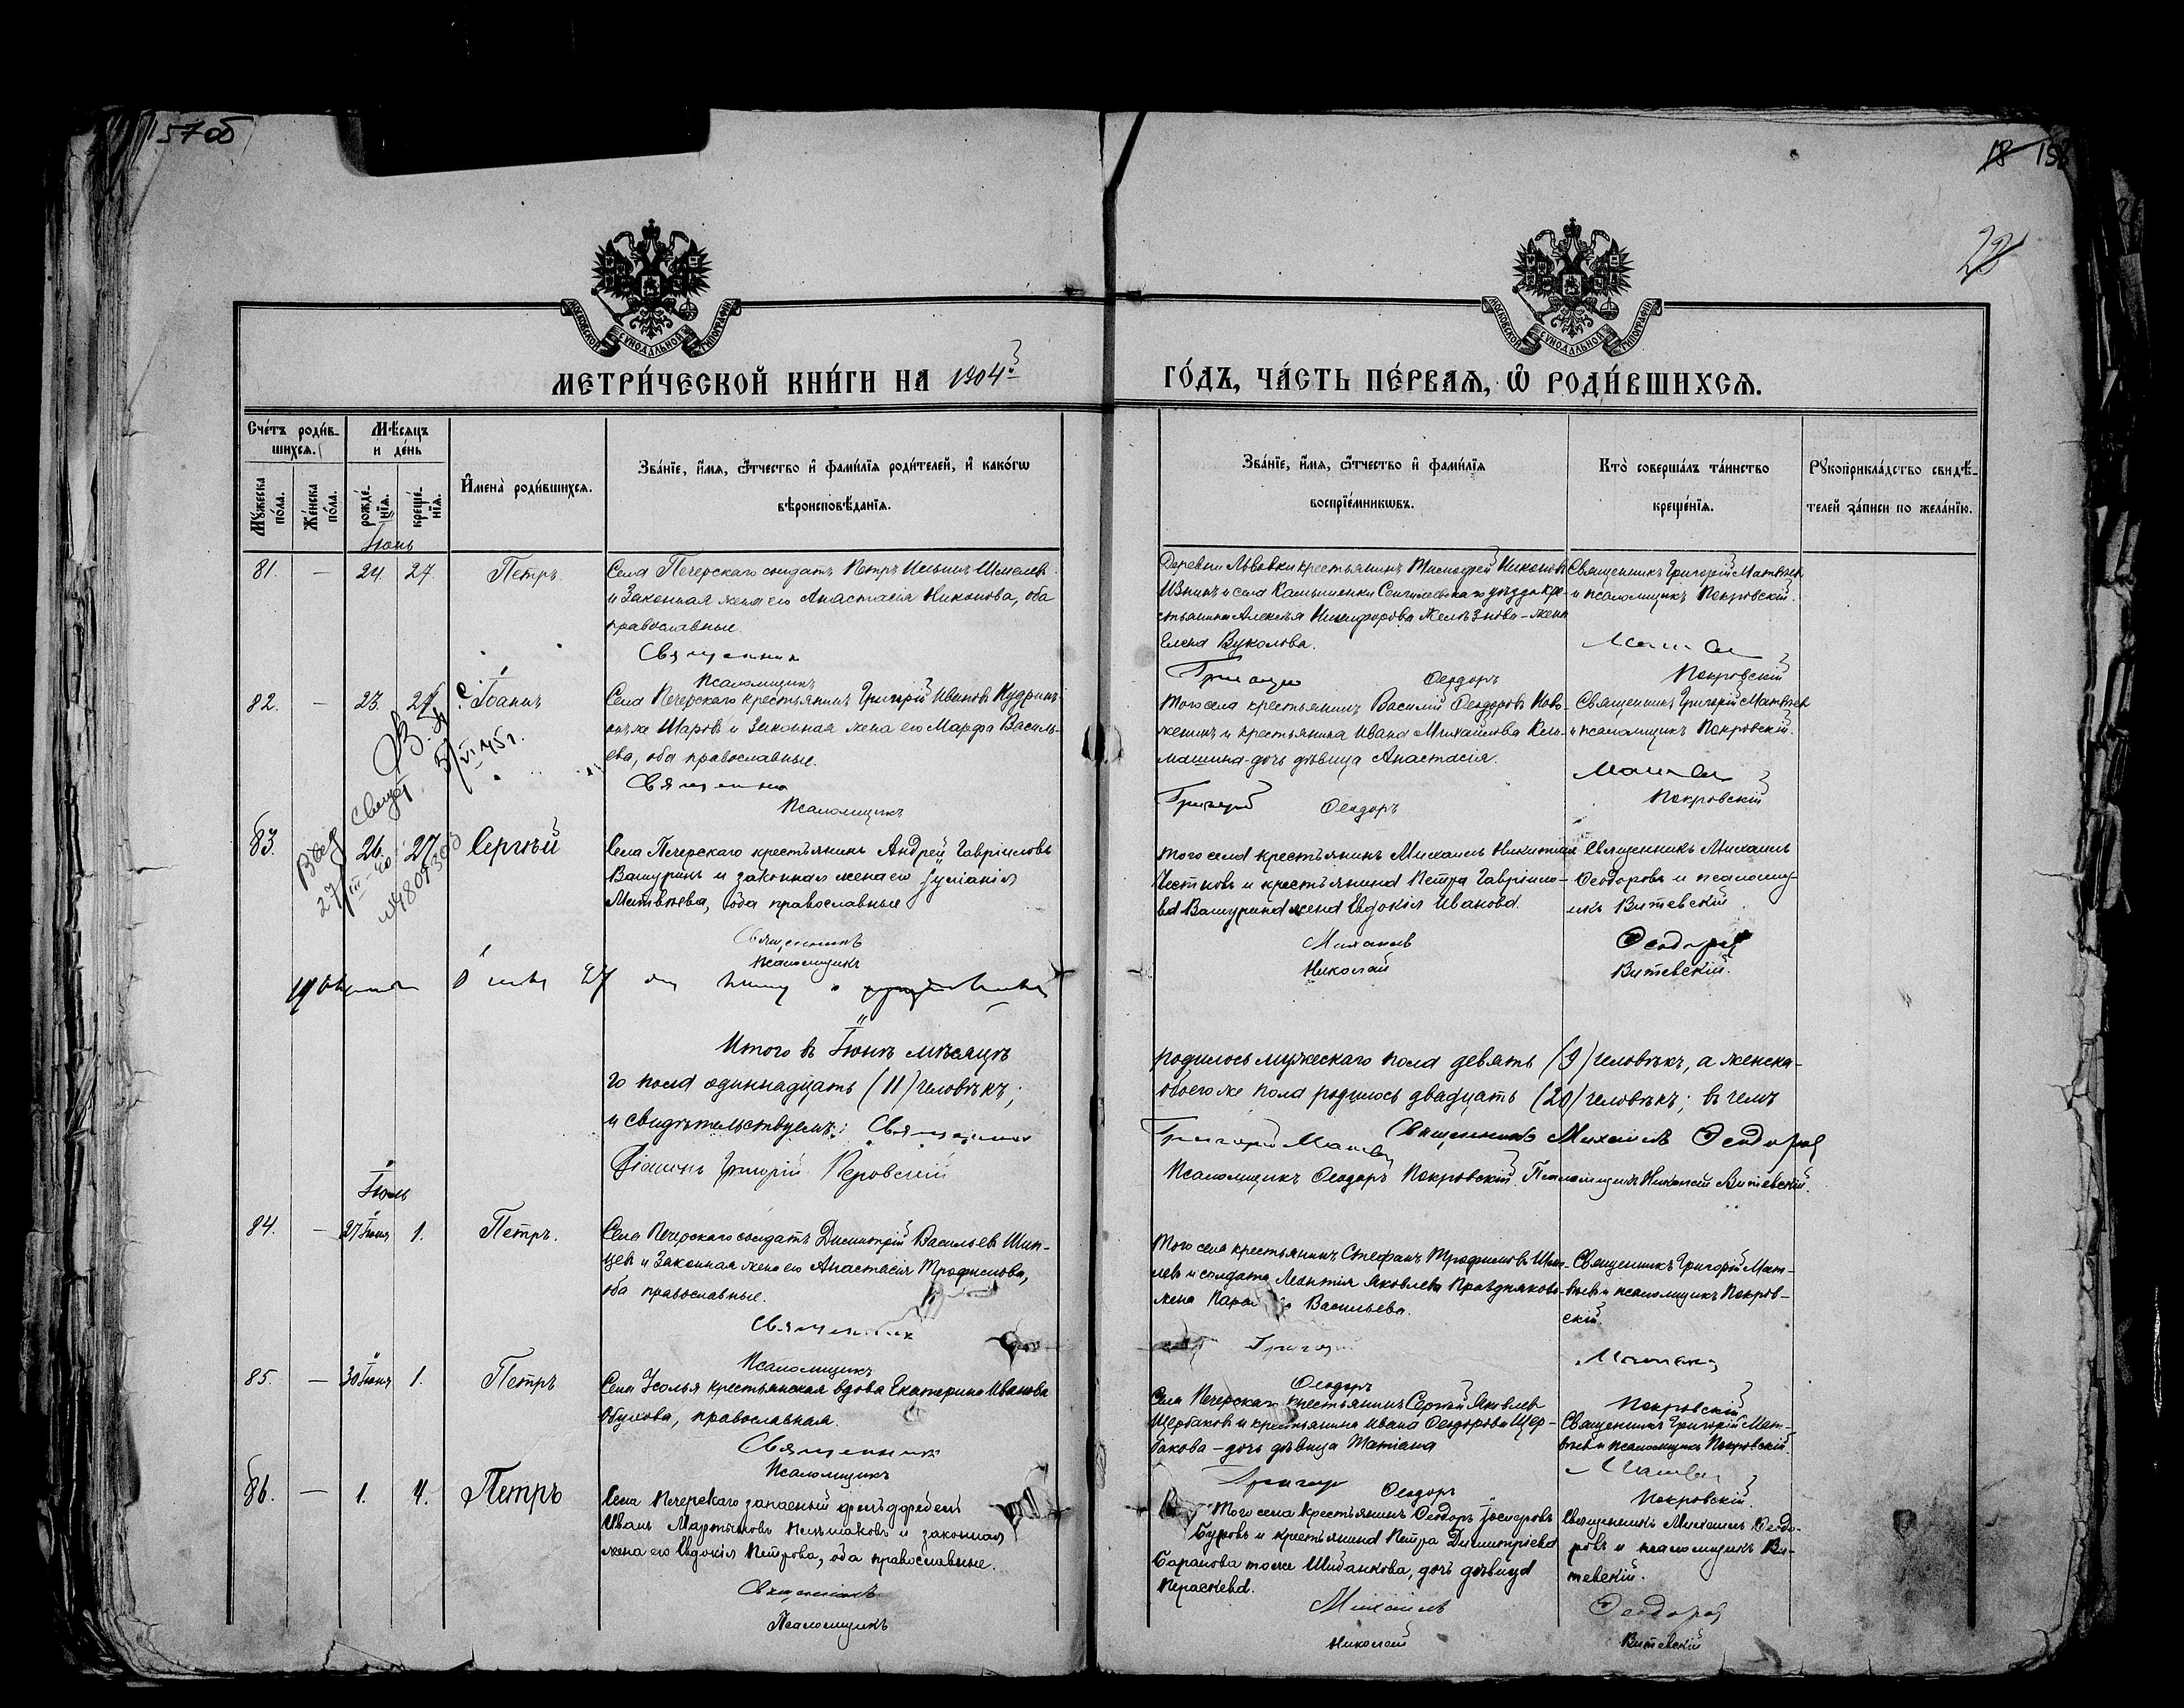 57 об
18
28
МОСКОВСКОЙ СѴНОДАЛЬНОЙ ТИПОГРАФІИ
МОСКОВСКОЙ СѴНОДАЛЬНОЙ ТИПОГРАФІИ
МЕТРИ́ЧЕСКОЙ КНИ́ГИ НА 1904й
ГО́ДЪ, ЧА́СТЬ ПЕ́РВАѦ, Ѡ҆ РОДИ́ВШИХСѦ.
Сче́тъ роди́в-
шихсѧ.
Мѣ́сѧцъ
и де́нь
Мꙋ́жеска по́ла.
Же́нска по́ла.
рожде́-нїѧ.
креще́-нїѧ.
И҆мена̀ роди́вшихсѧ.
Зва́нїе, и҆́мѧ, ѻ҆́тчество и҆ фами́лїѧ роди́телей, и҆ како́гѡ
вѣроисповѣ́данїѧ.
Зва́нїе, и҆́мѧ, ѻ҆́тчество и҆ фами́лїѧ
воспрїе́мникѡвъ.
Кто̀ соверша́лъ та́инство
креще́нїѧ.
Рꙋкоприкла́дство свидѣ́-
телей за́писи по жела́нїю.
Іюнь
81. — 24. 27. Петръ.
Села Печерскаго солдатъ Петръ Ильинъ Шмелевъ
и законная жена его Анастасія Никонова, оба
православные.
Священникъ
Псаломщикъ
Деревни Львовки крестьянинъ Тимофей Никоновъ
и села Камышенки Сенгилеевскаго уѣзда кре-
стьянина Алексѣя Никифорова Желѣзнова – жена
Елена Вуколова.
Григорій Ѳеодоръ
Священникъ Григорій Матвѣевъ
и псаломщикъ Покровскій.
Матвѣевъ
Покровскій
82. — 23. 27. Іоаннъ
Села Печерскаго крестьянинъ Григорій Ивановъ Кудринъ
онъ же Шаровъ и законная жена его Марѳа Василь-
ева, оба православные.
Священникъ
Псаломщикъ
Того села крестьянинъ Василій Ѳеодоровъ Ново-
женинъ и крестьянина Ивана Михайлова
дочь дѣвица Анастасія.
Григорій Ѳеодоръ
Священникъ Григорій Матвѣевъ
и псаломщикъ Покровскій.
Матвѣевъ
Покровскій
5/VI 45 г.
27/III-40
83. 26. 27. Сергѣй
Села Печерскаго крестьянинъ Андрей Гавріиловъ
Вашуринъ и законная жена его Іуліанія
Матвѣева, оба православные
Священникъ
Псаломщикъ
того села крестьянинъ Михаилъ Никитинъ
Честновъ и крестьянина Петра Гаврiило-
ва Вашурина жена Евдокія Иванова.
Михаилъ
Николай
Священникъ Михаилъ
Ѳеодоровъ и псаломщ-
икъ Витевскій.
Ѳеодоровъ
Витевскій.
Итого въ Іюнѣ мѣсяцѣ
родилось мужескаго пола девять (9) человѣкъ, а женска-
го пола одиннадцать (11) человѣкъ;
обоего же пола родилось двадцать (20) человѣкъ; въ чемъ
и свидѣтельствуемъ: Священникъ
Григорій Матвѣевъ Священникъ Михаилъ Ѳеодоровъ
Діаконъ Григорій Перовскій
Псаломщикъ Ѳеодоръ Покровскій. Псаломщикъ Николай Витевскій.
Іюль
84. — 27 Іюня 1. Петръ.
Села Печерскаго солдатъ Димитрій Васильевъ
и законная жена его Анастасія Трофимова,
оба православные.
Священникъ
Псаломщикъ
Того села крестьянинъ Стефанъ Трофимовъ
и солдата Леонтія Яковлева
жена Васильева.
Григорій
Ѳеодоръ
Священникъ Григорій Мат-
вѣевъ и псаломщикъ Покров-
скій.
Матвѣевъ
Покровскій
85. — 30 Іюня 1. Петръ
Села Усолья крестьянская вдова Екатерина Иванова
Обухова, православная.
Священникъ
Псаломщикъ
Села Печерскаго крестьянинъ Сергѣй Яковлевъ
Щербаковъ и крестьянина Ивана Ѳеодорова Щер-
бакова – дочь дѣвица Татіана
Григорій Ѳеодоръ
Священникъ Григорій Мат-
вѣевъ и псаломщикъ Покровскій.
Матвѣевъ
Покровскій.
86. — 1. 4. Петръ
Села Печерскаго запасный
Иванъ Мартыновъ и законная
жена его Евдокія Петрова, оба православные.
Священникъ
Псаломщикъ
Того села крестьянинъ Ѳеодоръ Іосифовъ
Буровъ и крестьянина Петра Димитріева
Баранова тоже Шибанкова, дочь дѣвица
Параскева.
Михаилъ
Николай
Священникъ Михаилъ Ѳеодо-
ровъ и псаломщикъ Ви-
тевскій.
Ѳеодоровъ
Витевскій